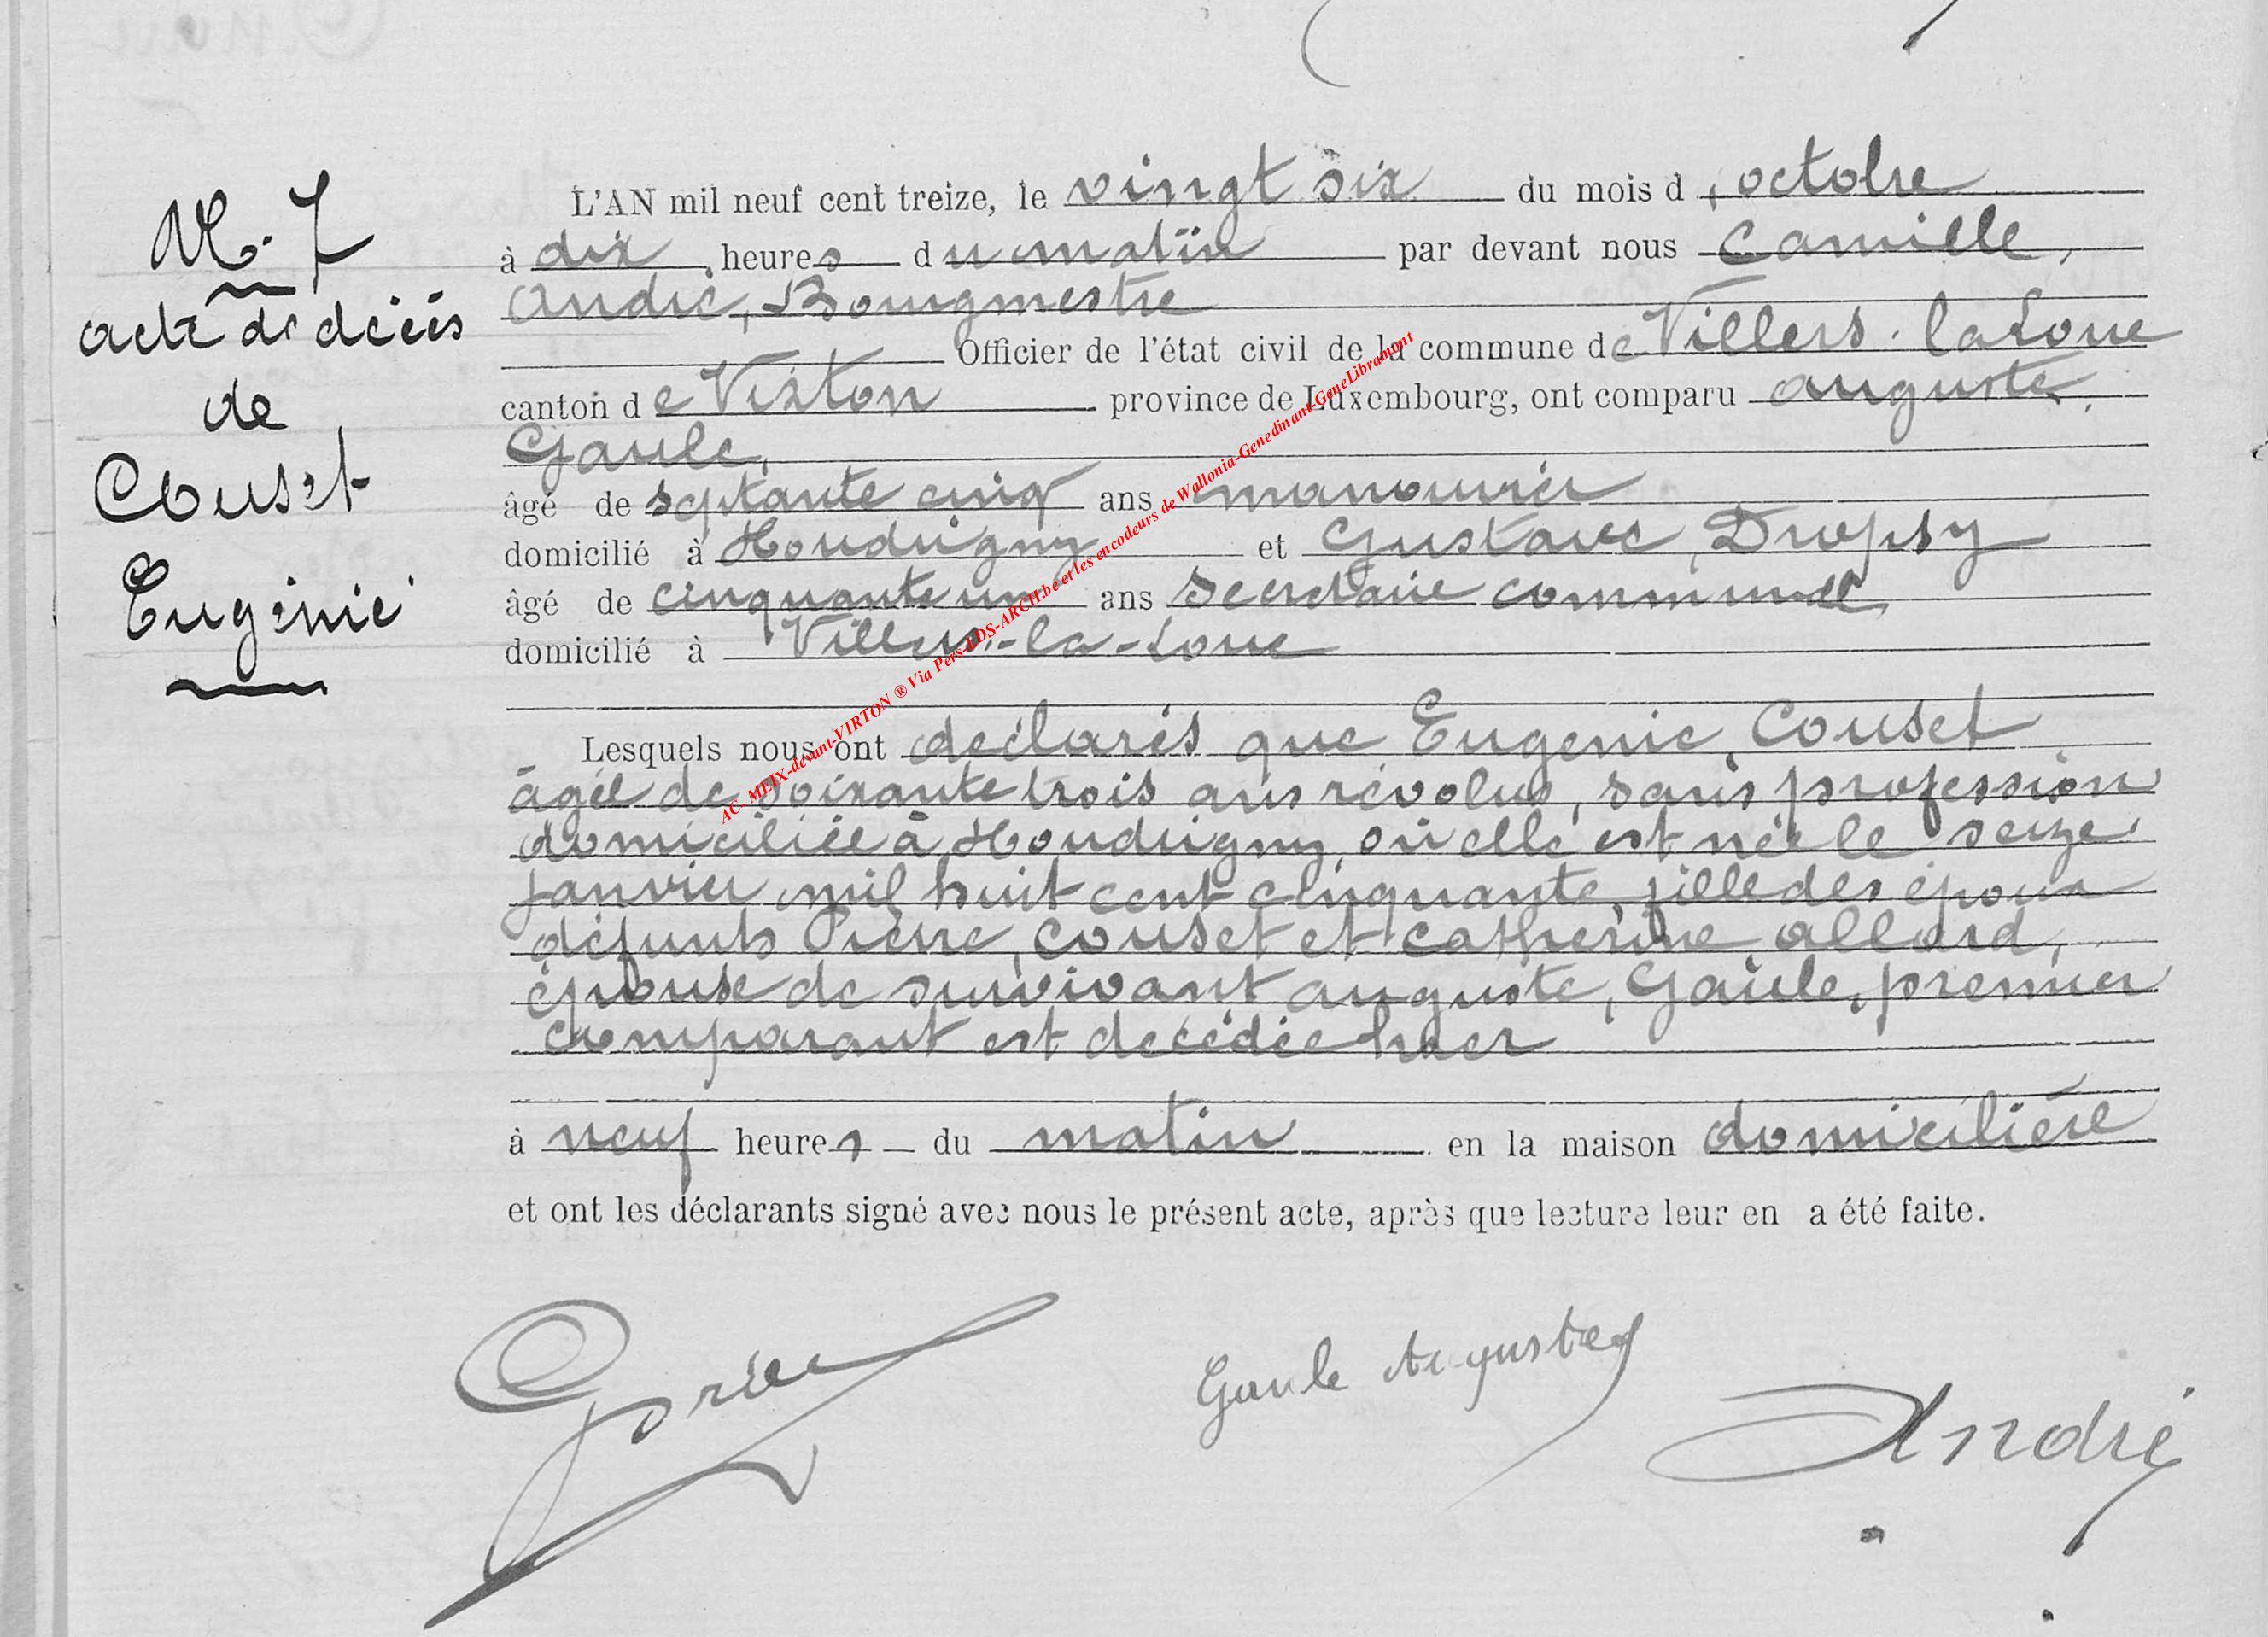 N. 7
acte de décès
de
Couset
Eugénie
L'AN mil neuf cent treize, le vingt six du mois d'octobre
à dix heures du matin par devant nous Camille,
André, Bourgmestre
Officier de l'état civil de la commune de Villers-la Loue
canton de Virton province de Luxembourg, ont comparu Auguste,
Gaule,
âgé de septante cinq ans manouvrier
domicilié à Houdrigny et Gustave, Dropsy
âgé de cinquante un ans secrétaire communal
domicilié à Villers-la-Loue
Lesquels nous ont déclarés que Eugenie, Couset
âgée de soixante trois ans révolus, sans profession
domiciliée à Houdrigny, où elle est née le seize
janvier mil huit cent cinquante, fille des époux
défunts Pierre, Couset et Catherine, Allard,
épouse de survivant Auguste, Gaule, premier
comparant est décédée hier
à neuf heures du matin en la maison domicilière
et ont les déclarants signé avec nous le présent acte, après que lecture leur en a été faite.
Gaule Auguste
André
AC. MEIX-devant-VIRTON ® Via Pers-LDS-ARCH.be et les encodeurs de Wallonia-Genedinant-GeneLibramont